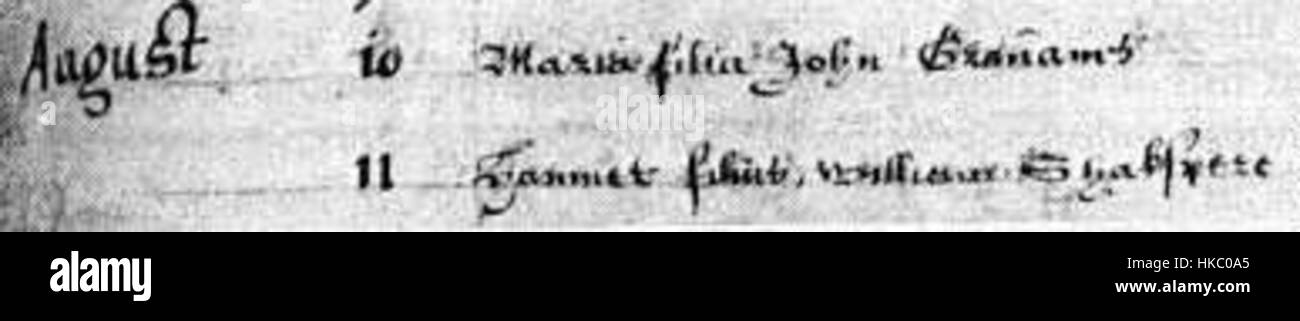 August 10 Maria filia John Granams
11 Hamnet filius William Shakspere
alamy
alamy
Image ID: HKC0A5
www.alamy.com